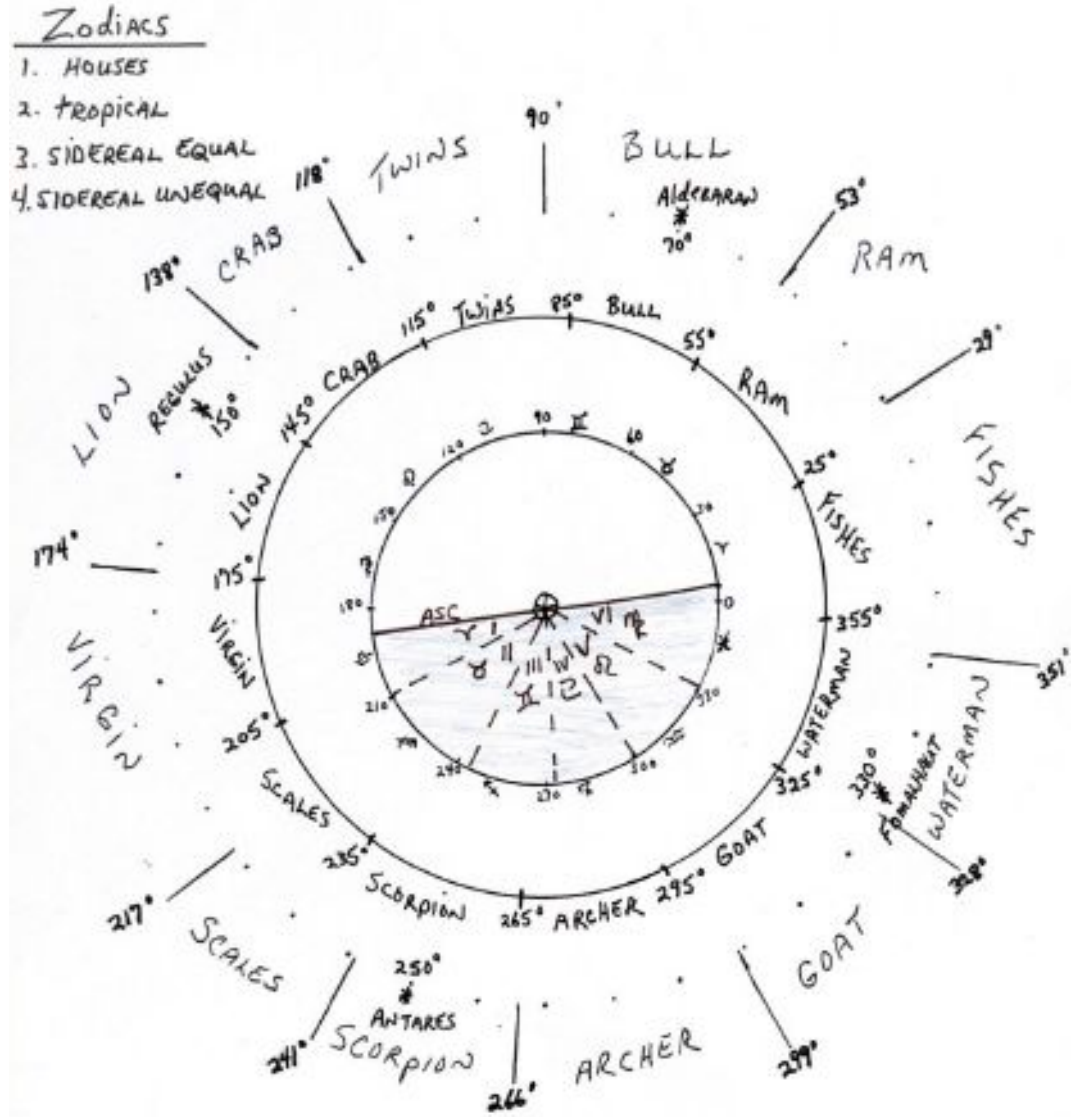 Zodiacs
1. HOUSES
2. TROPICAL
3. SIDEREAL EQUAL
4. SIDEREAL UNEQUAL
90°
BULL
Aldebaran
70°
53°
RAM
29°
FISHES
351°
WATERMAN
330°
FOMALHAUT
328°
GOAT
299°
ARCHER
266°
SCORPION
250°
ANTARES
241°
SCALES
217°
VIRGIN
174°
LION
REGULUS
150°
138°
CRAB
118°
TWINS
85°
BULL
55°
RAM
25°
FISHES
355°
WATERMAN
325°
GOAT
295°
ARCHER
265°
SCORPION
235°
SCALES
205°
VIRGIN
175°
LION
145°
CRAB
115°
TWINS
90
♊
60
♉
30
♈
0
♓
330
♒
300
♑
270
♐
240
♏
210
♎
180
♍
150
♌
120
♋
ASC
♈ I
♉ II
♊ III
♋ IV
♌ V
♍ VI